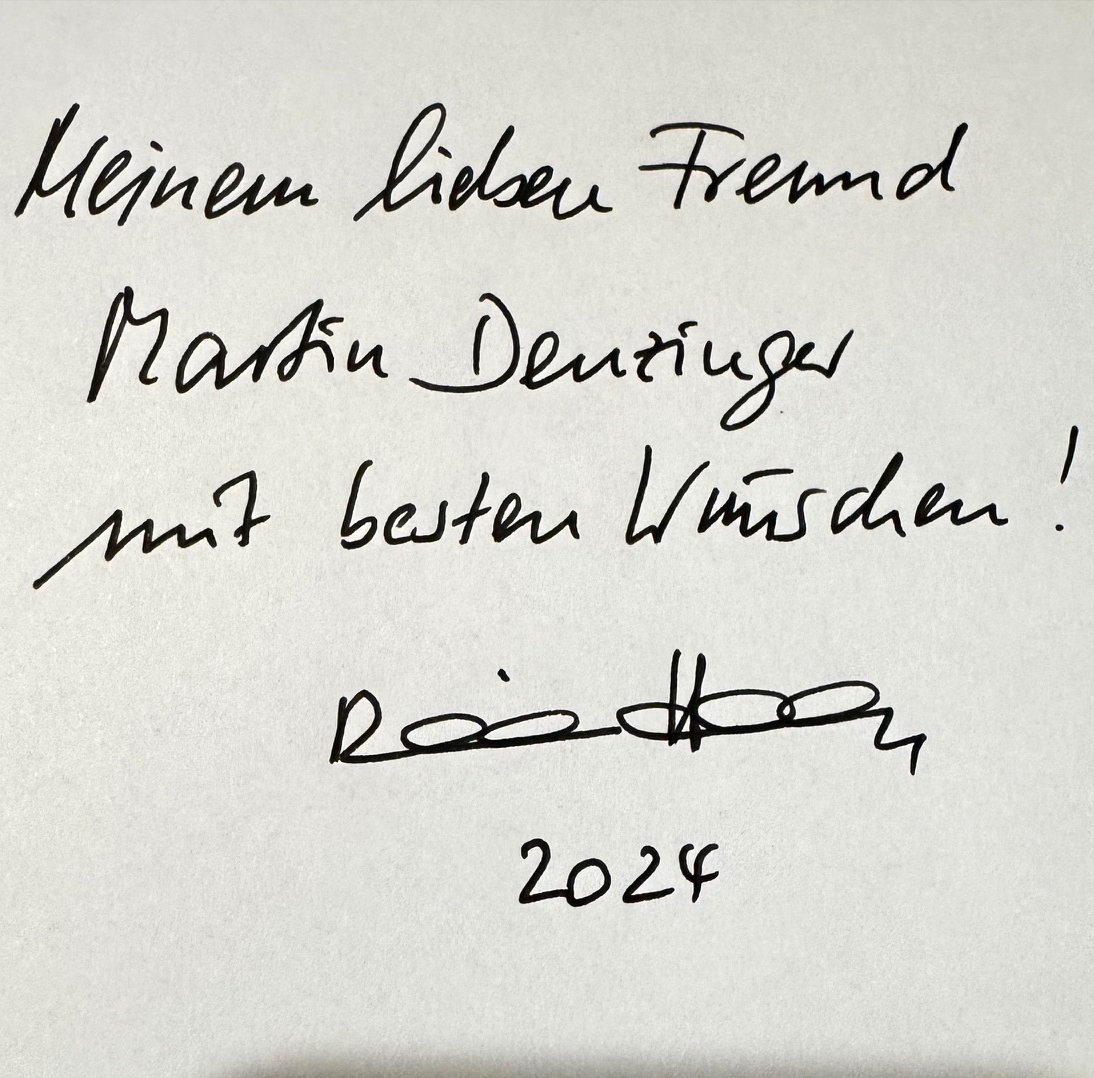 Meinem lieben Freund
Martin Denzinger
mit besten Wünschen!
2024